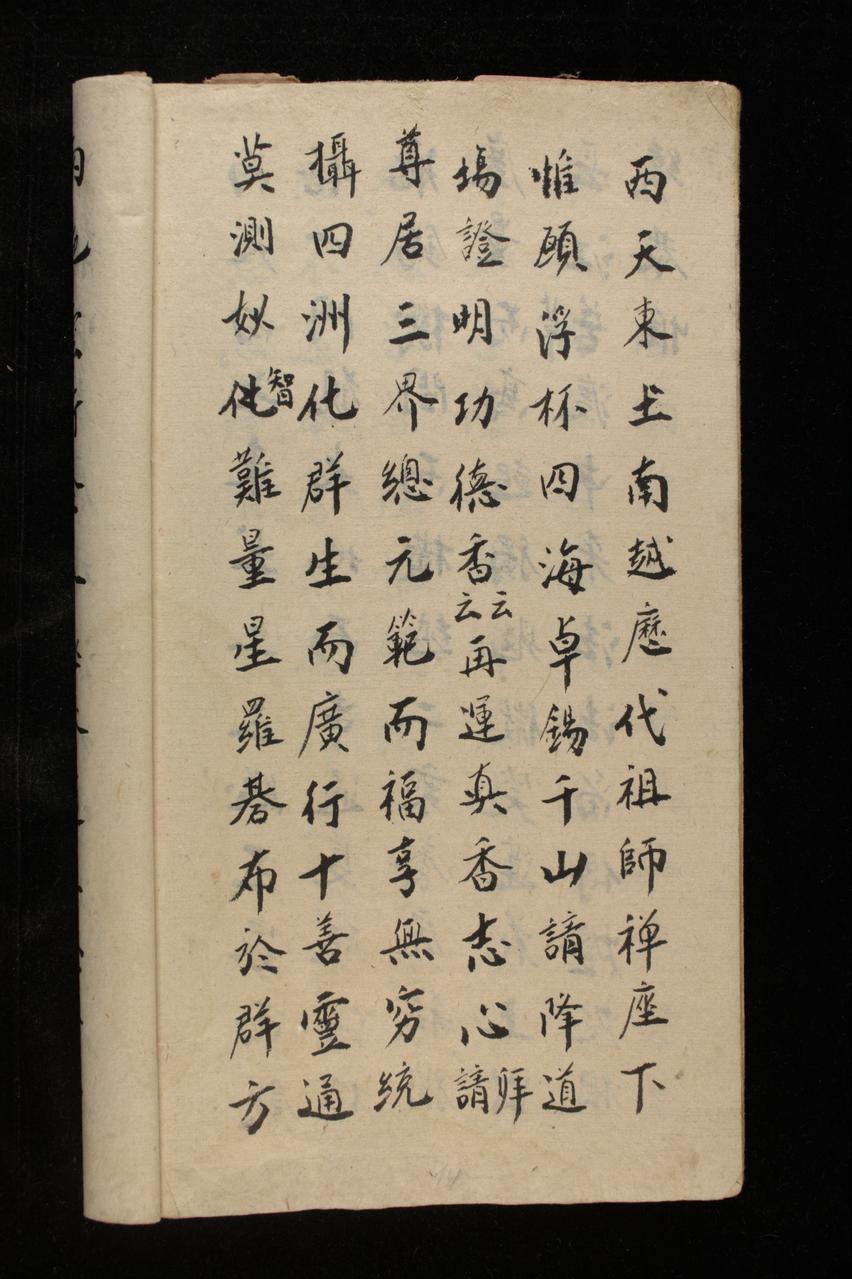 西天東土南越歷代祖師禅座下
惟願浮杯四海卓錫千山請降道
塲證明功德香云云再運真香志心請拜
尊居三界總元範而福享無穷統
攝四洲化群生而廣行十善靈通
莫測妙化智難量星羅碁布於群方